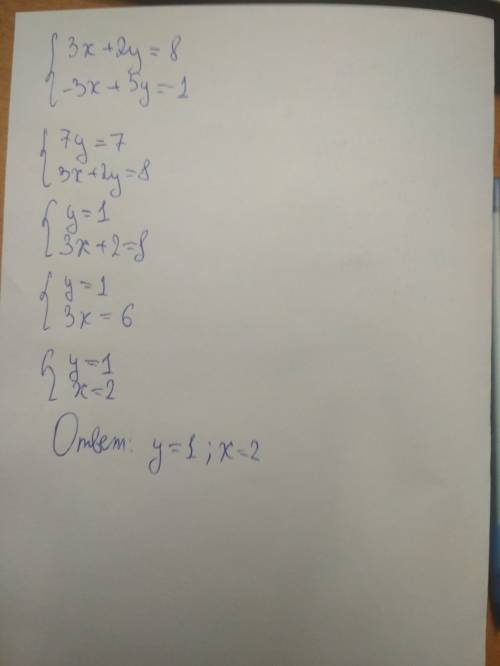 3x+2y=8
-3x+5y=-1
7y=7
3x+2y=8
y=1
3x+2=8
y=1
3x=6
y=1
x=2
Ответ: y=1; x=2